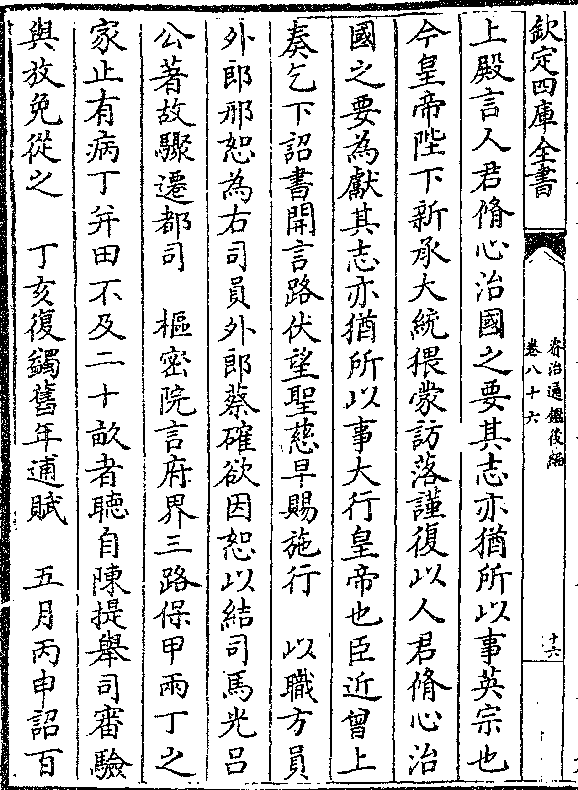 欽定四庫全書
資治通鑑後編
卷八十六
十六
上殿言人君脩心治國之要其志亦猶所以事英宗也
今皇帝陛下新承大統猥蒙訪落謹復以人君脩心治
國之要為獻其志亦猶所以事大行皇帝也臣近曾上
奏乞下詔書開言路伏望聖慈早賜施行　以職方員
外郎邢恕為右司員外郎蔡確欲因恕以結司馬光呂
公著故驟遷都司　樞密院言府界三路保甲兩丁之
家止有病丁并田不及二十畝者聽自陳提舉司審驗
與放免從之　丁亥復蠲舊年逋賦　五月丙申詔百